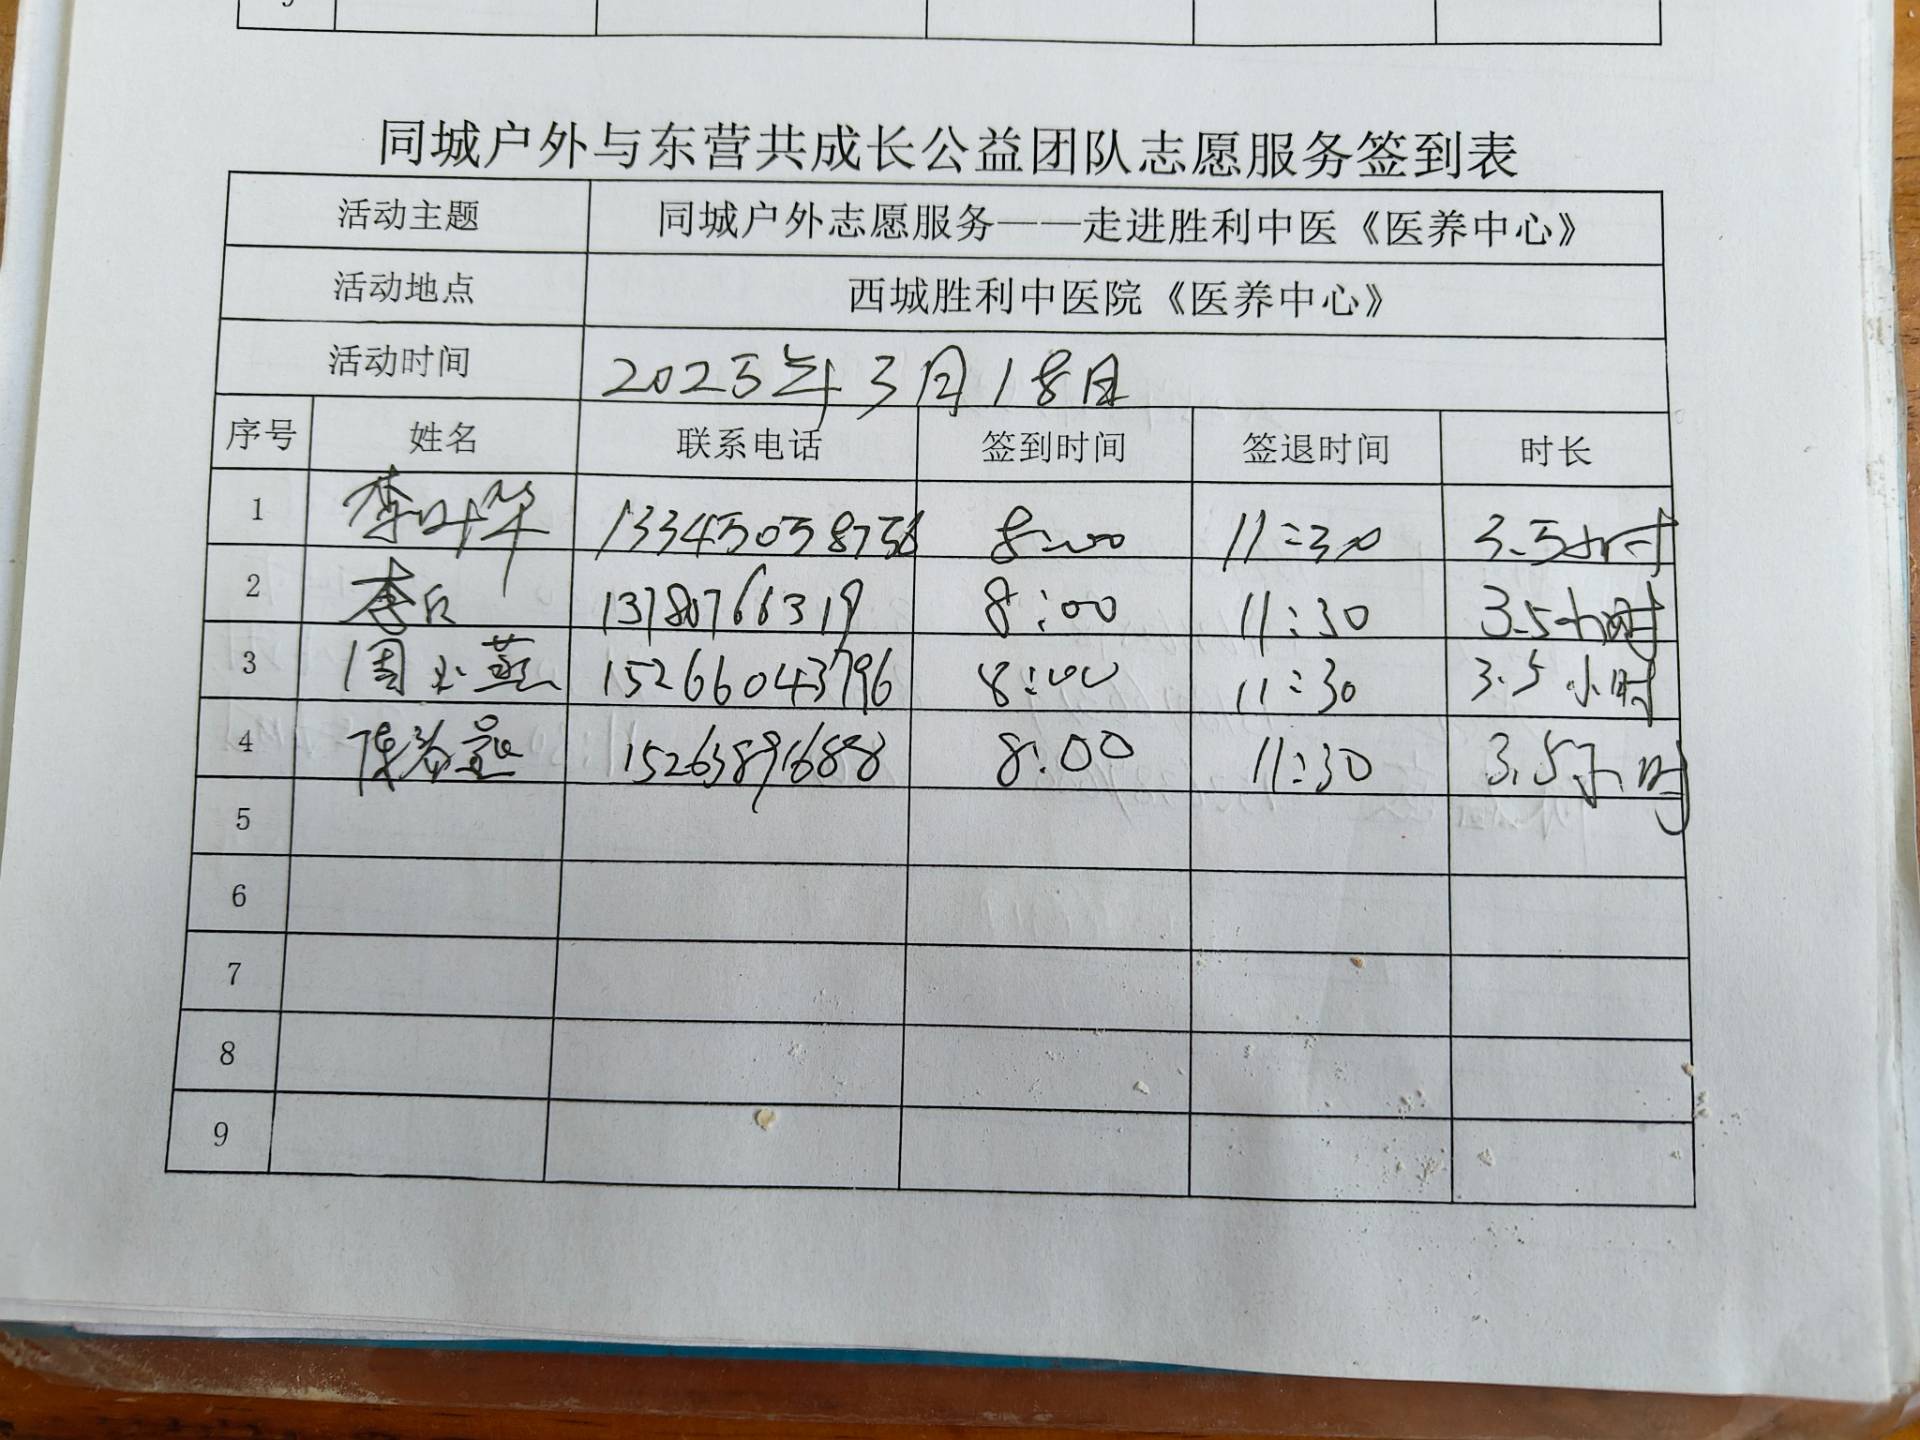 同城户外与东营共成长公益团队志愿服务签到表
活动主题 同城户外志愿服务——走进胜利中医《医养中心》
活动地点 西城胜利中医院《医养中心》
活动时间 2025年3月18日
序号 姓名 联系电话 签到时间 签退时间 时长
1 李叶华 8:00 11:30 3.5小时
2 李 13780766319 8:00 11:30 3.5小时
3 周小燕 15266043796 8:00 11:30 3.5小时
4 陈 15263896888 8:00 11:30 3.5小时
5
6
7
8
9